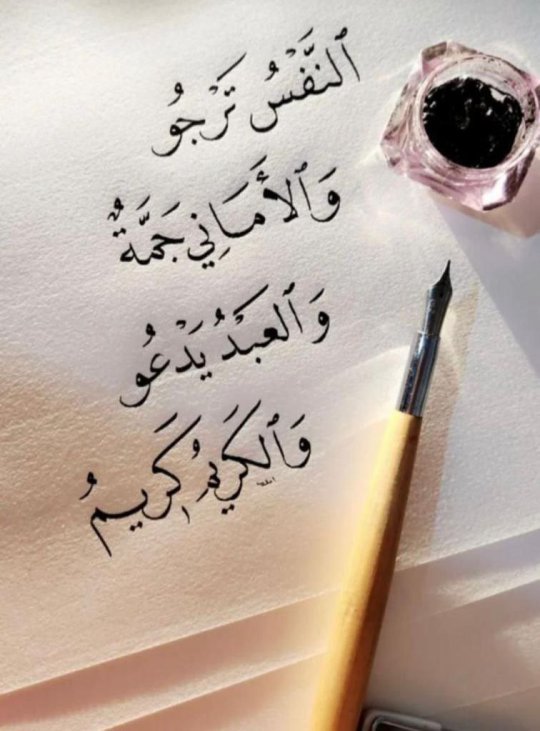 ٱلنَّفْسُ تَرْجُو
وَٱلأَمَانِي جَمَّةٌ
وَٱلعَبْدُ يَدْعُو
وَٱلكَرِيمُ كَرِيمُ